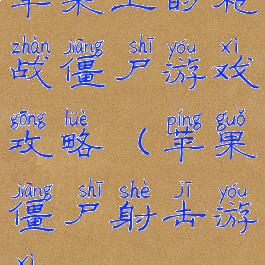 苹果上的枪
zhàn jiāng shī yóu xì
战僵尸游戏
gōng lüè píng guǒ
攻略（苹果
jiāng shī shè jī yóu
僵尸射击游
xì